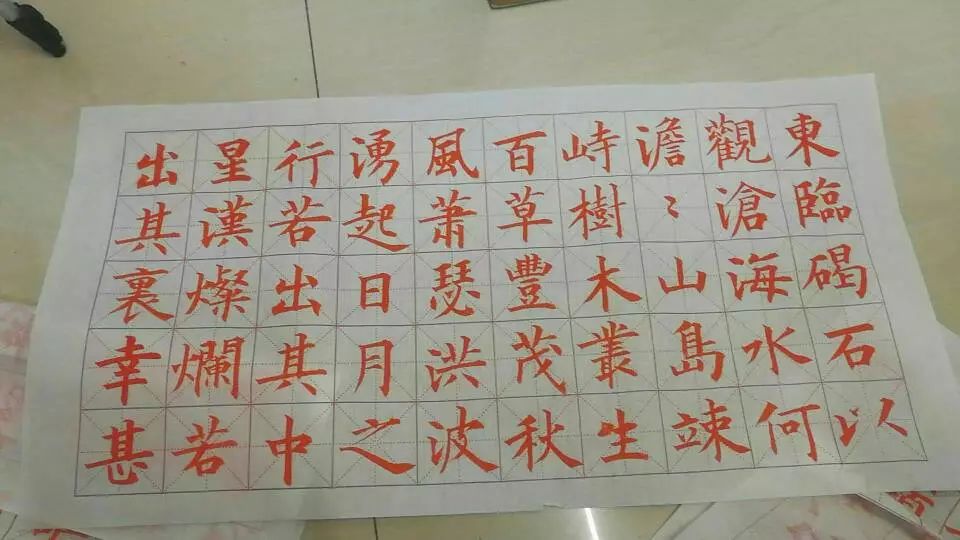 東臨碣石以
觀滄海水何
澹〻山島竦
峙樹木叢生
百草豐茂秋
風蕭瑟洪波
湧起日月之
行若出其中
星漢燦爛若
出其裏幸甚